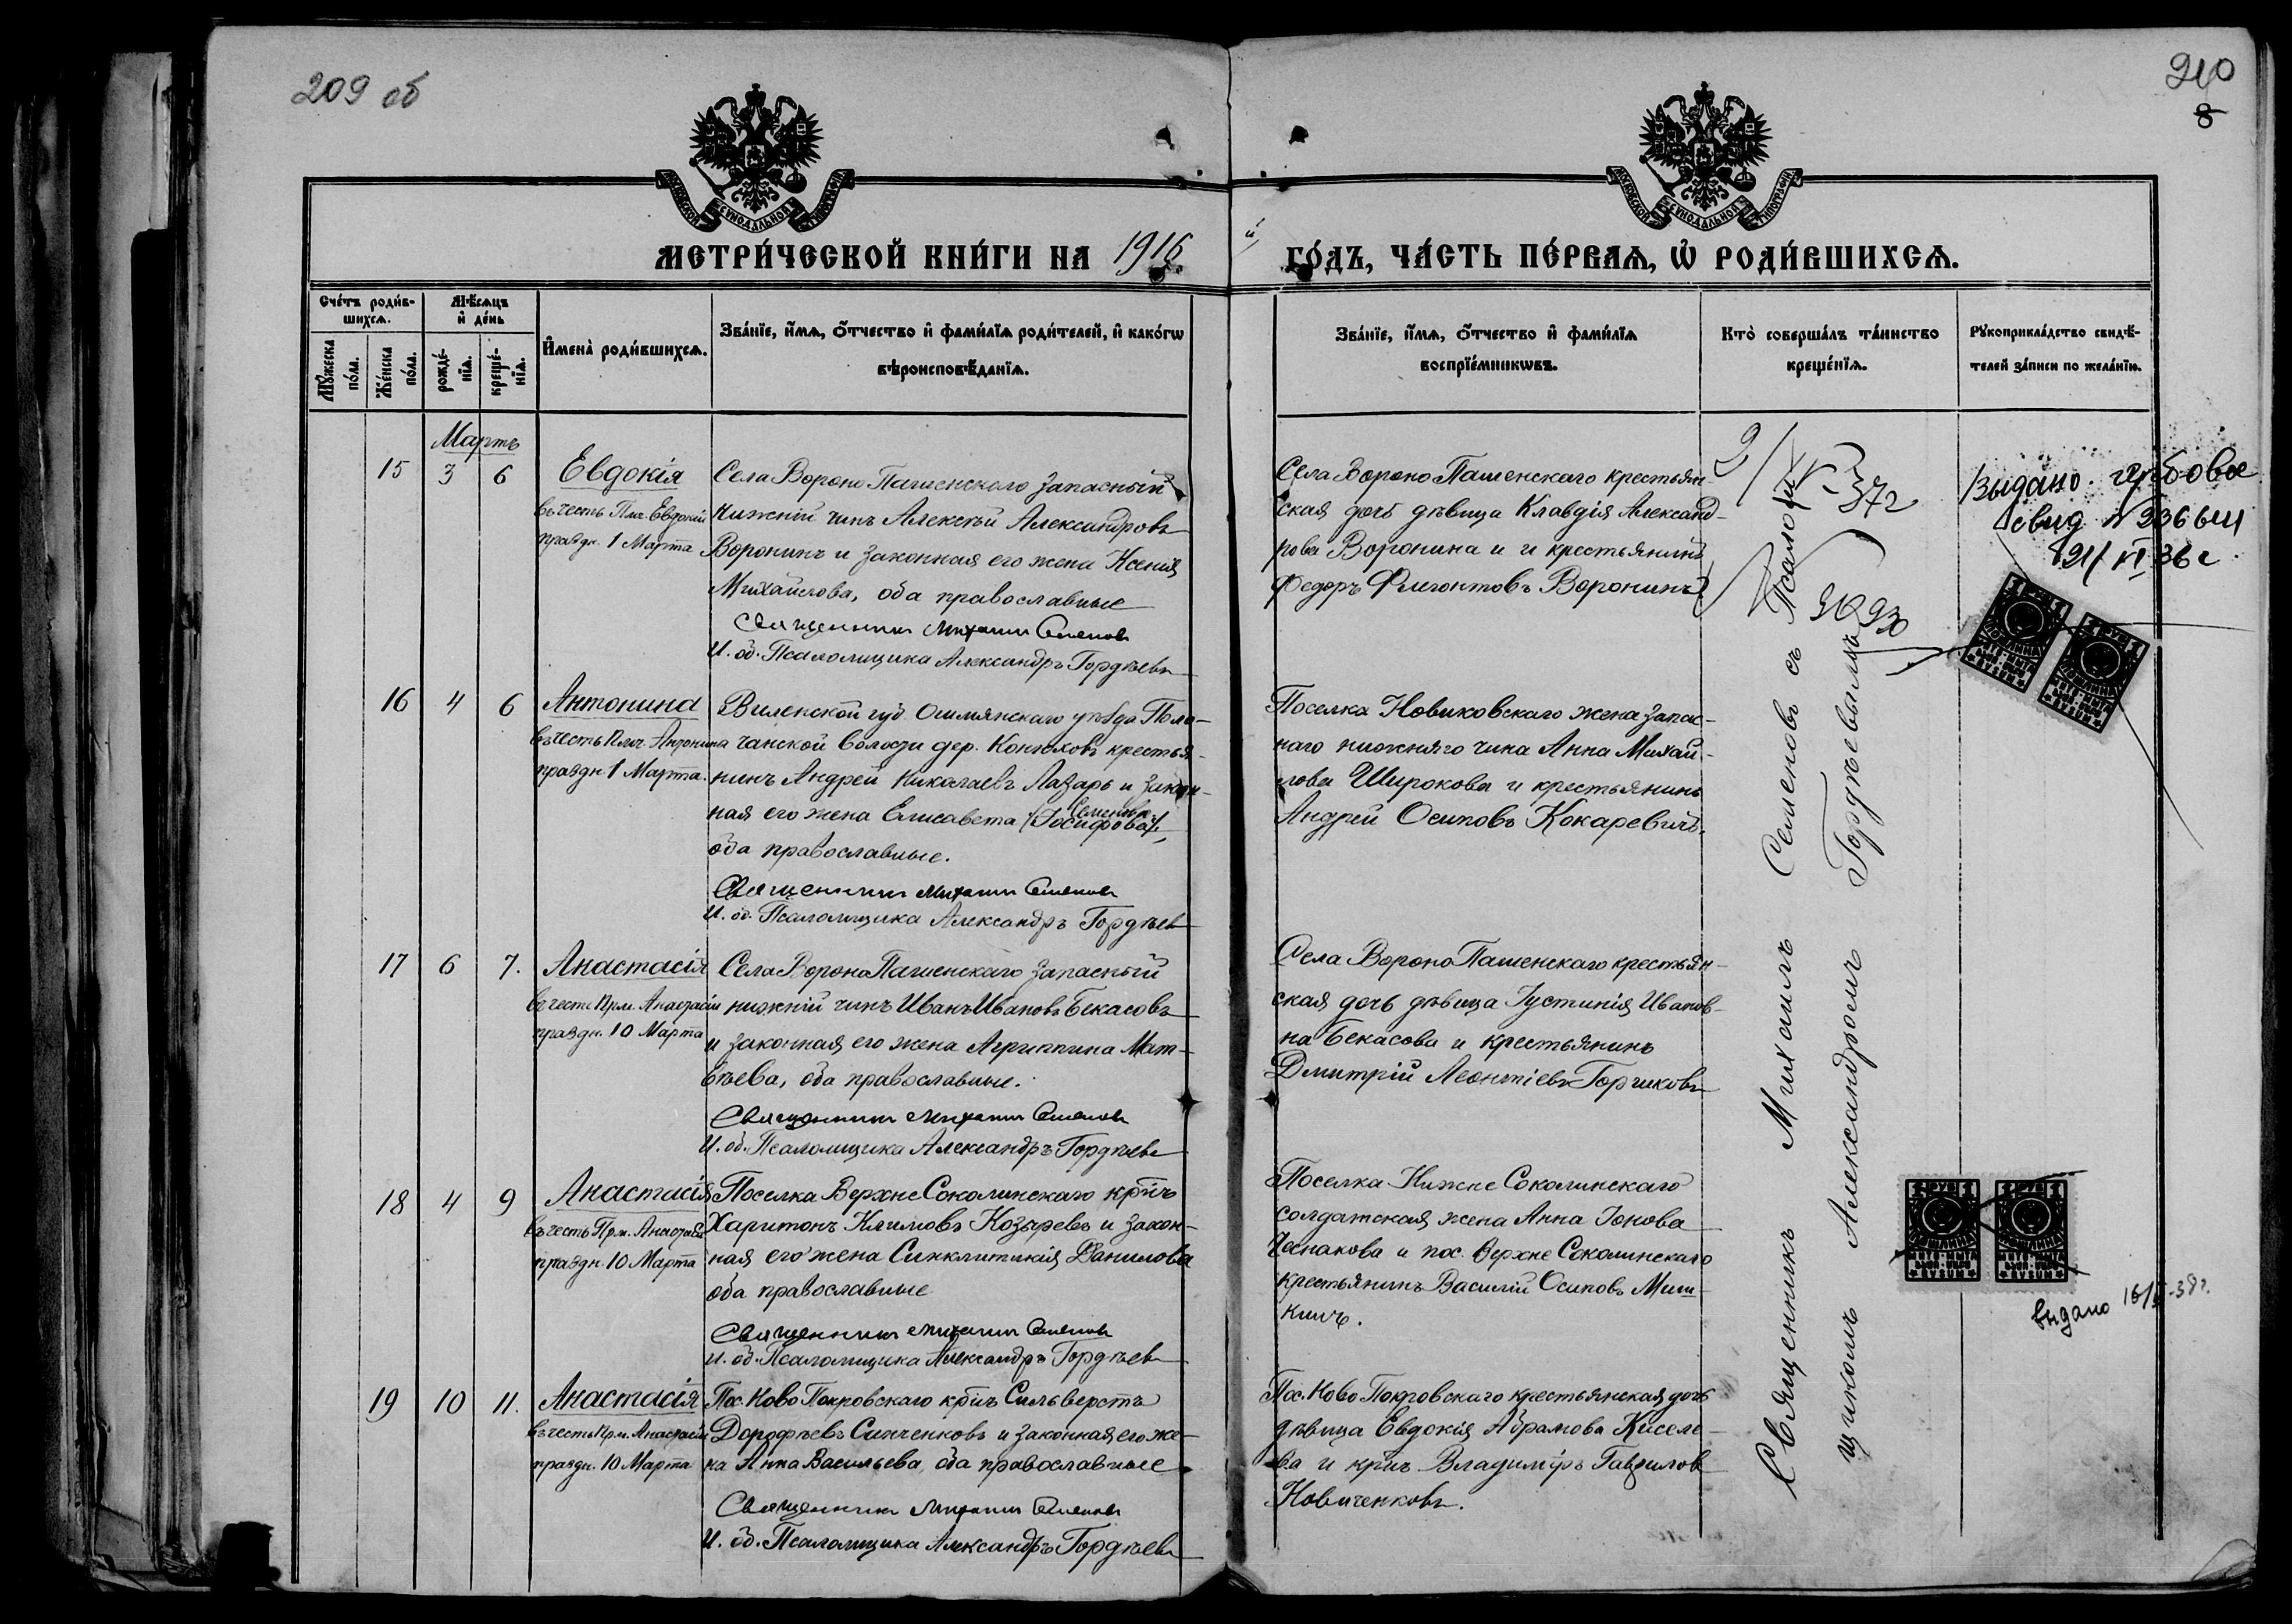 209 об
210
8
МОСКОВСКОЙ СѴНОДАЛЬНОЙ ТИПОГРАФІИ
МОСКОВСКОЙ СѴНОДАЛЬНОЙ ТИПОГРАФІИ
МЕТРИ́ЧЕСКОЙ КНИ́ГИ НА 1916 й ГО́ДЪ, ЧА́СТЬ ПЕ́РВАѦ, Ѿ РОДИ́ВШИХСѦ.
Сче́тъ роди́в-
шихсѧ.
Мꙋ́жеска по́ла.
Же́нска по́ла.
Мѣ́сѧцъ и҆ де́нь
рожде́-нїѧ.
креще́-нїѧ.
И҆мена̀ роди́вшихсѧ.
Зва́нїе, и҆́мѧ, ѻ҆́тчество и҆ фами́лїѧ роди́телей, и҆ како́гѡ
вѣроисповѣ́данїѧ.
Зва́нїе, и҆́мѧ, ѻ҆́тчество и҆ фами́лїѧ
воспрїе́мникѡвъ.
Кто̀ соверша́лъ та́инство
креще́нїѧ.
Рꙋкоприкла́дство свидѣ́-
телей за́писи по жела́нїю.
Мартъ
15 3 6
Евдокія
въ честь Пмч. Евдокіи
праздн. 1 Марта
Села Вороно Пашенскаго запасный
нижній чинъ Алексѣй Александровъ
Воронинъ и законная его жена Ксенія
Михайлова, оба православные
Священникъ Михаилъ Семеновъ
И. об. Псаломщика Александръ Гордѣевъ
Села Вороно Пашенскаго крестьян-
ская дочь дѣвица Клавдія Александ-
рова Воронина и крестьянинъ
Федоръ Флегонтовъ Воронинъ
372
Выдано гербовое
свид № 336 6ш
21/VI 36 г
16 4 6
Антонина
въ честь Пмч. Антонина
праздн. 1 Марта.
Виленской губ. Ошмянскаго уѣзда Поло-
чанской волости дер. Конюховъ крестья-
нинъ Андрей Николаевъ Лазарь и закон-
ная его жена Елисавета (Іосифова) Семенова,
оба православные.
Священникъ Михаилъ Семеновъ
И. об. Псаломщика Александръ Гордѣевъ
Поселка Новиковскаго жена запас-
наго нижняго чина Анна Михай-
лова Широкова и крестьянинъ
Андрей Осиповъ Кокаревичъ.
17 6 7.
Анастасія
въ честь Прм. Анастасіи
праздн. 10 Марта
Села Вороно Пашенскаго запасный
нижній чинъ Иванъ Ивановъ Бекасовъ
и законная его жена Агриппина Мат-
вѣева, оба православные.
Священникъ Михаилъ Семеновъ
И. об. Псаломщика Александръ Гордѣевъ
Села Вороно Пашенскаго крестьян-
ская дочь дѣвица Іустинія Иванов-
на Бекасова и крестьянинъ
Дмитрій Леонтіевъ Горчиковъ
18 4 9
Анастасія
въ честь Прм. Анастасіи
праздн. 10 Марта
Поселка Верхне Соколинскаго кр͠нъ
Харитонъ Климовъ Козыревъ и закон-
ная его жена Синклитикія Данилова
оба православные
Священникъ Михаилъ Семеновъ
И. об. Псаломщика Александръ Гордѣевъ
Поселка Нижне Соколинскаго
солдатская жена Анна Іонова
Чеснакова и пос. Верхне Соколинскаго
крестьянинъ Василій Осиповъ Миш-
кинъ.
выдано 16/V-38 г.
19 10 11.
Анастасія
въ честь Прм. Анастасіи
праздн. 10 Марта
Пос. Ново Покровскаго кр͠нъ Сильверстъ
Дорофѣевъ Синченковъ и законная его же-
на Анна Васильева, оба православные
Священникъ Михаилъ Семеновъ
И. об. Псаломщика Александръ Гордѣевъ
Пос. Ново Покровскаго крестьянская дочь
дѣвица Евдокія Абрамова Киселе-
ва и кр͠нъ Владиміръ Гавриловъ
Новиченковъ.
Священникъ Михаилъ Семеновъ съ Псалом-
щикомъ Александромъ Гордѣевымъ
1 РУБ 1
ПОШЛИНА
1 РУБ 1
ПОШЛИНА
1 РУБ 1
ПОШЛИНА
1 РУБ 1
ПОШЛИНА